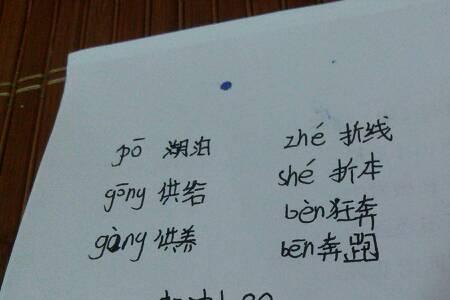 pō 湖泊 zhé 折线
gōng 供给 shé 折本
gòng 供养 bèn 狂奔
bēn 奔跑